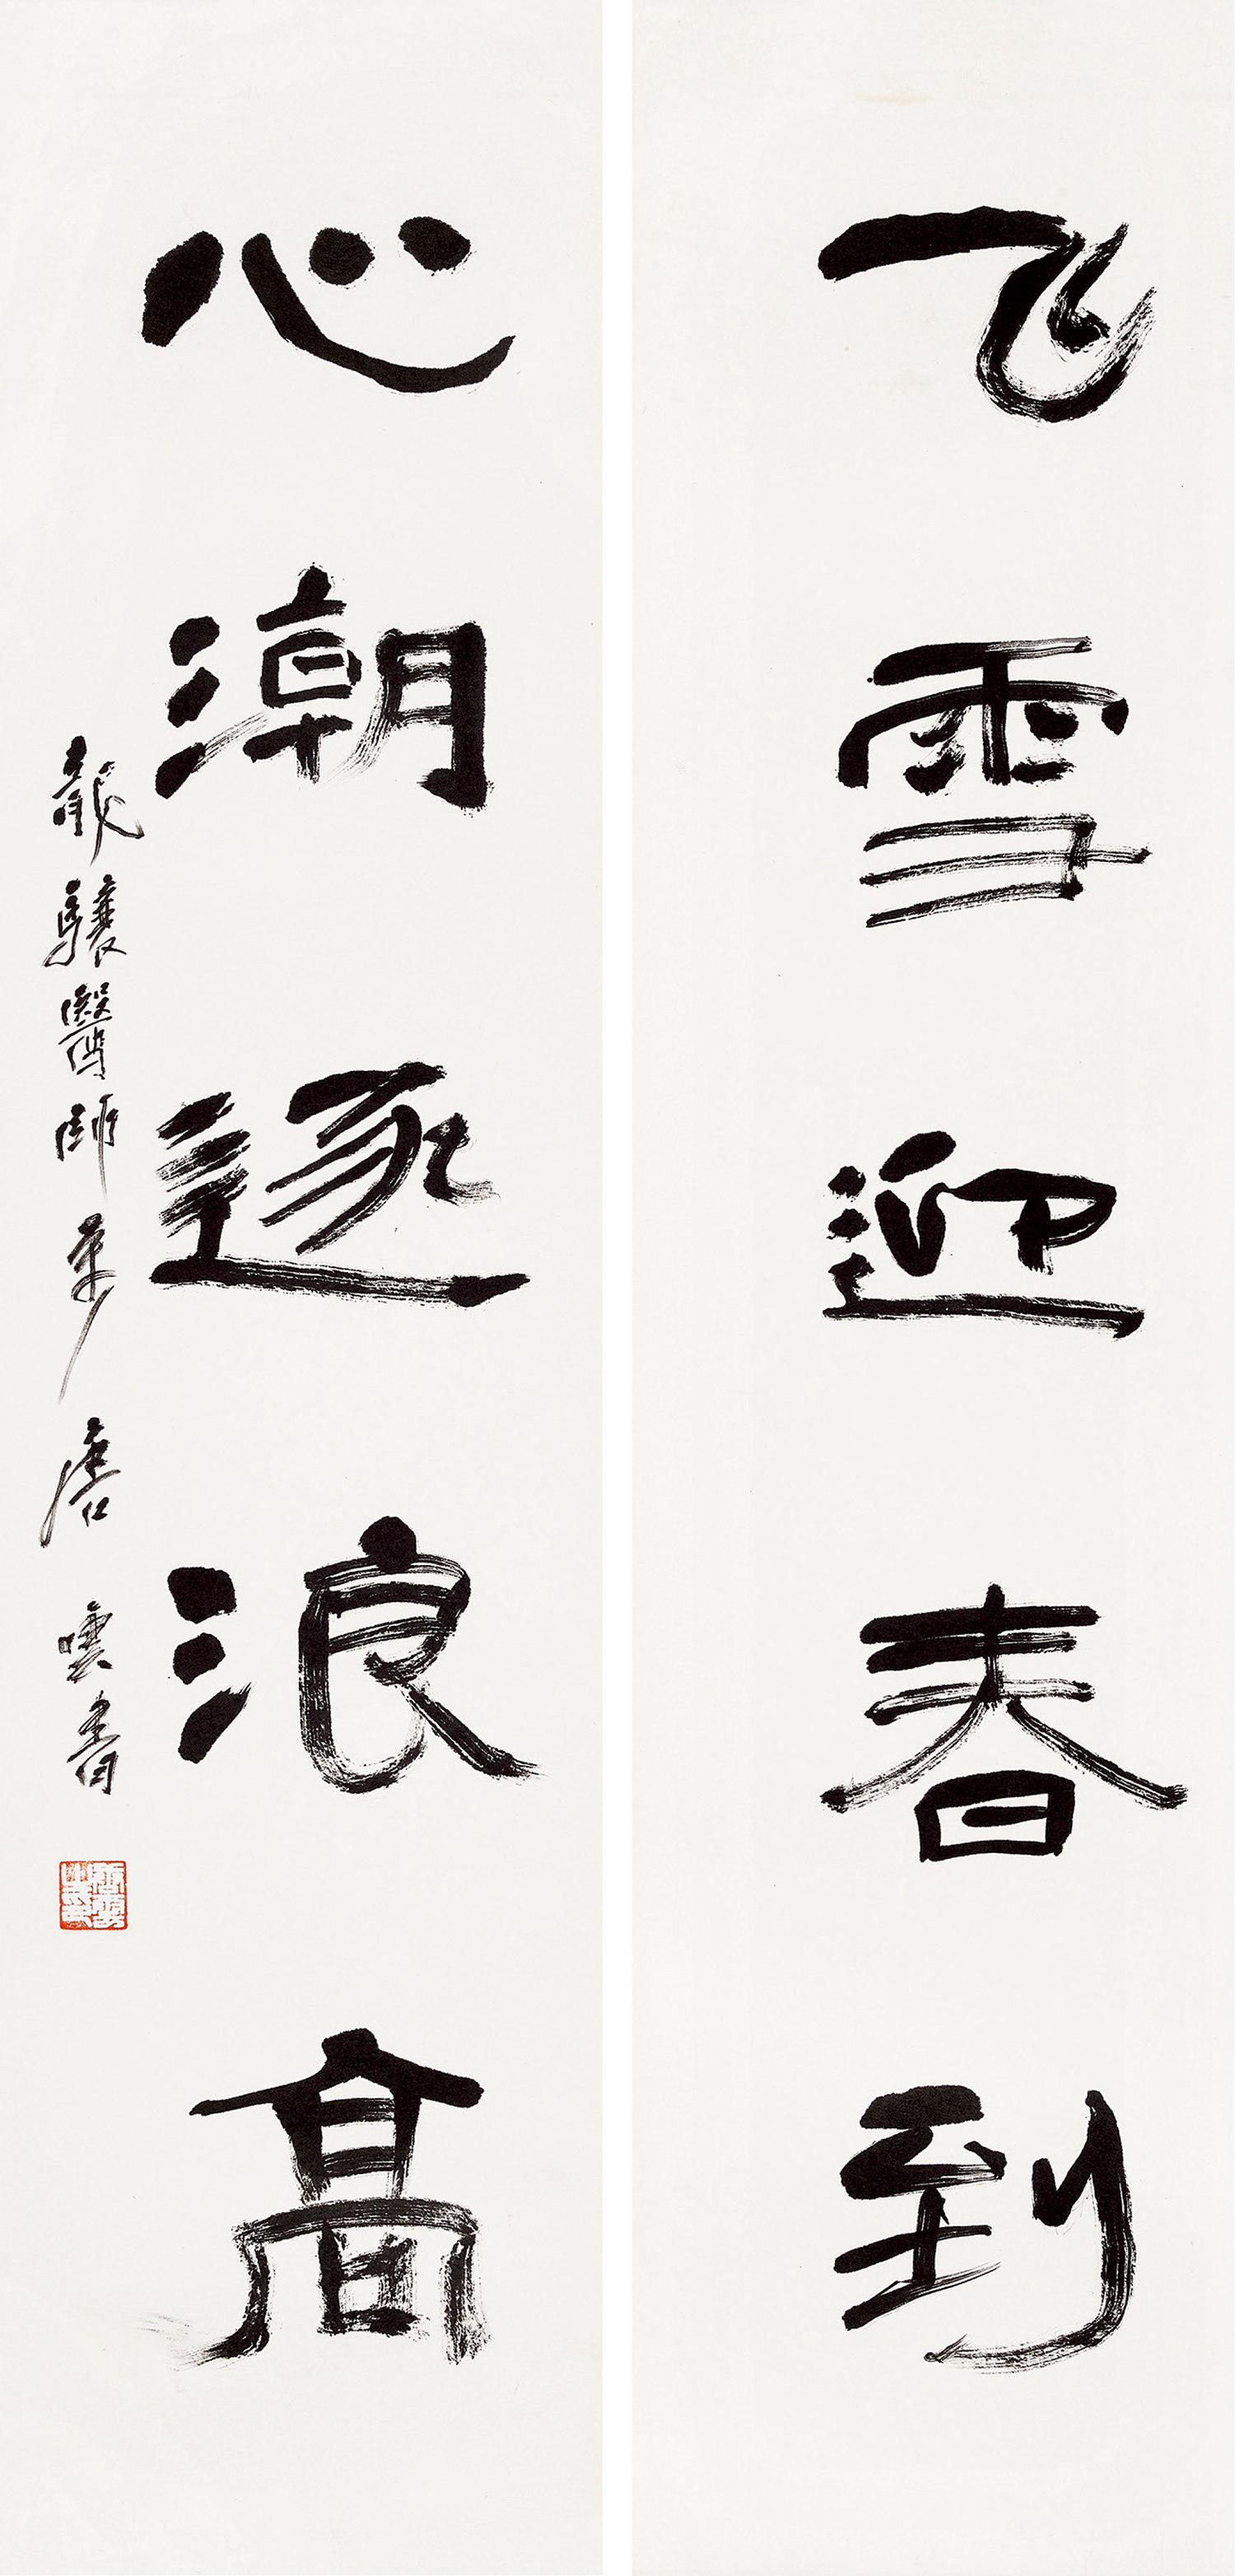 飞雪迎春到
心潮逐浪高
龍驤醫師 唐雲書